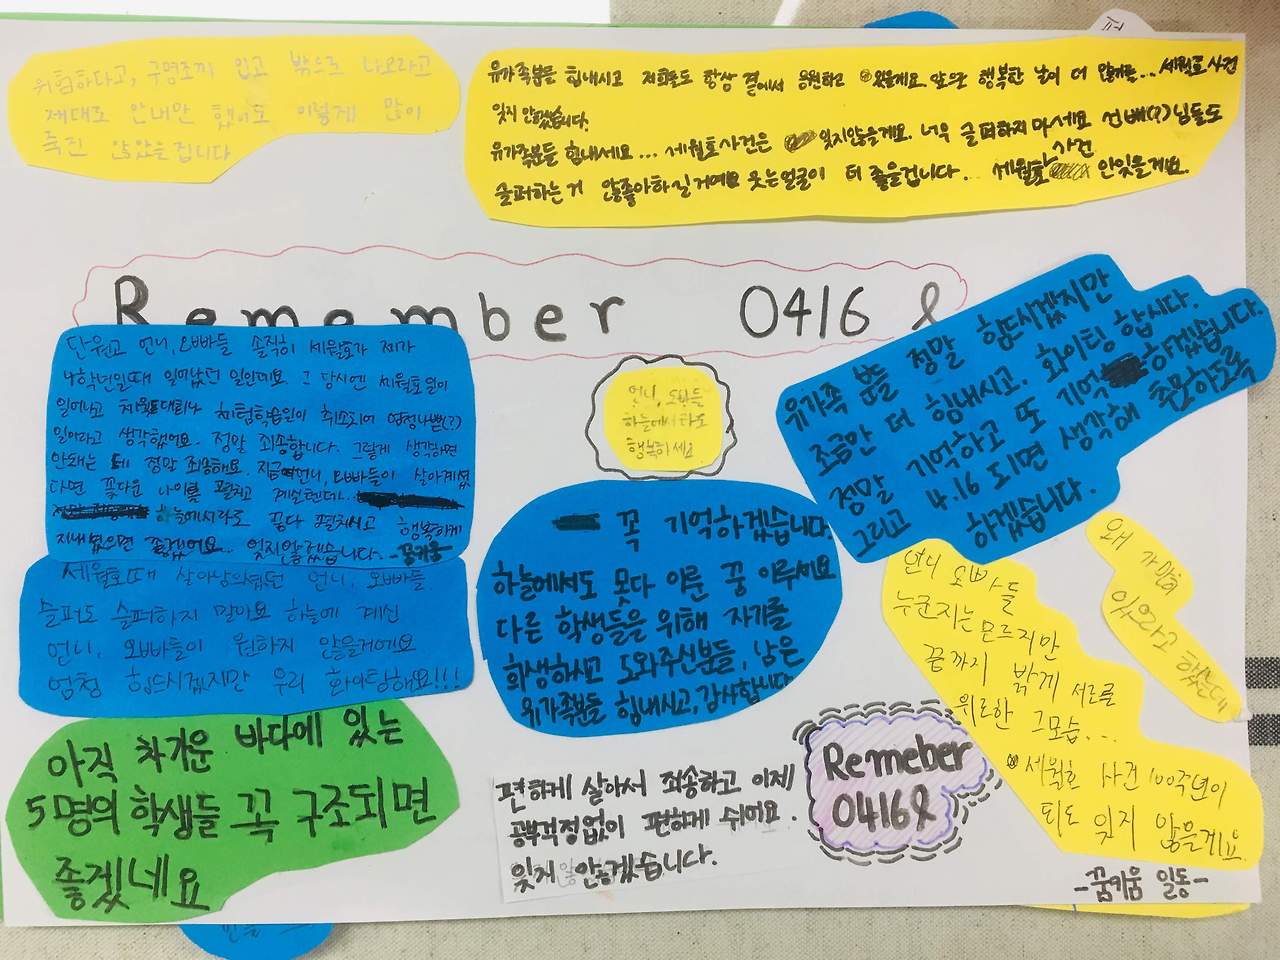 위험하다고, 구명조끼 입고 밖으로 나오라고
제대로 안내만 했어도 이렇게 많이
죽진 않았을 겁니다
유가족분들 힘내시고 저희들도 항상 곁에서 응원하고 있을게요. 앞으로 행복한 날이 더 많기를... 세월호 사건
잊지 않겠습니다.
유가족분들 힘내세요... 세월호 사건은 잊지않을게요. 너무 슬퍼하지 마세요 선배(?)님들도
슬퍼하는 거 안좋아하실거예요 웃는얼굴이 더 좋을겁니다... 세월호 사건 안잊을게요.
Remember 0416
단원고 언니, 오빠들 솔직히 세월호가 제가
4학년일때 일어났던 일인데요. 그 당시엔 세월호 일이
일어나고 체험학습이 취소되어 엄청나쁜(?)
일이라고 생각했어요. 정말 죄송합니다. 그렇게 생각하면
안돼는 데 정말 죄송해요. 지금 언니, 오빠들이 살아계셨
다면 꽃다운 나이를 펼치고 계실텐데...
하늘에서라도 꿈다 펼치시고 행복하게
지내셨으면 좋겠어요... 잊지않겠습니다. -꿈키움-
세월호때 살아남으셨던 언니, 오빠들
슬퍼도 슬퍼하지 말아요 하늘에 계신
언니, 오빠들이 원하지 않을거에요
엄청 힘드시겠지만 우리 화이팅해요!!!
아직 차가운 바다에 있는
5명의 학생들 꼭 구조되면
좋겠네요
언니, 오빠들
하늘에서라도
행복하세요
꼭 기억하겠습니다.
하늘에서도 못다 이룬 꿈 이루세요
다른 학생들을 위해 자기를
희생하시고 도와주신분들, 남은
유가족분들 힘내시고, 감사합니다
편하게 살아서 죄송하고 이제
공부걱정없이 편하게 쉬어요.
잊지 않겠습니다.
Remeber
0416
유가족 분들 정말 힘드시겠지만
조금만 더 힘내시고. 화이팅 합시다.
정말 기억하고 또 기억하겠습니다.
그리고 4.16 되면 생각해 추모하도록
하겠습니다.
왜 가만히
있으라고 했는데
언니 오빠들
누군지는 모르지만
끝까지 밝게 서로를
위로한 그모습...
세월호 사건 100주년이
되도 잊지 않을게요.
-꿈키움 일동-